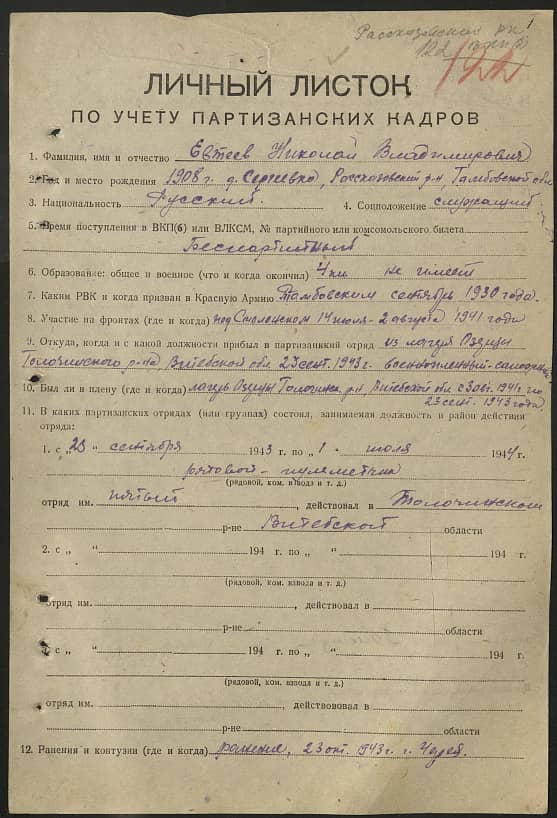 Рассказовский рк
122
1
122
ЛИЧНЫЙ ЛИСТОК
ПО УЧЕТУ ПАРТИЗАНСКИХ КАДРОВ
1. Фамилия, имя и отчество Евтеев Николай Владимирович
2. Год и место рождения 1908 г. д. Сергеевка, Рассказовский р-н, Тамбовской обл.
3. Национальность Русский 4. Соцположение служащий
5. Время поступления в ВКП(б) или ВЛКСМ, № партийного или комсомольского билета
Беспартийный
6. Образование: общее и военное (что и когда окончил) 4 кл. не имеет
7. Каким РВК и когда призван в Красную Армию Тамбовским сентябрь 1930 года.
8. Участие на фронтах (где и когда) под Смоленском 14 июля - 2 августа 1941 года
9. Откуда, когда и с какой должности прибыл в партизанкий отряд из лагеря Озерцы
Толочинского р-на Витебской обл. 23 сент. 1943 г. военнопленный
10. Был ли в плену (где и когда) лагерь Озерцы Толочинск. р-н, Витебской обл с 3 авг. 1941 г. по
23 сент. 1943 года
11. В каких партизанских отрядах (или группах) состоял, занимаемая должность и район действия
отряда:
1. с „ 23 “ сентября 1943 г. по „ 1 “ июля 1944 г.
рядовой - пулеметчик
(рядовой, ком. взвода и т. д.)
отряд им. пятый, действовал в Толочинском
р-не Витебской области
2. с „ “ 194 г. по „ “ 194 г.
(рядовой, ком. взвода и т. д.)
отряд им. , действовал в
р-не области
с „ “ 194 г. по „ “ 194 г.
(рядовой, ком. взвода и т. д.)
отряд им. , действововал в
р-не области
12. Ранения и контузии (где и когда) ранение, 23 окт. 1943 г. г. Черея.